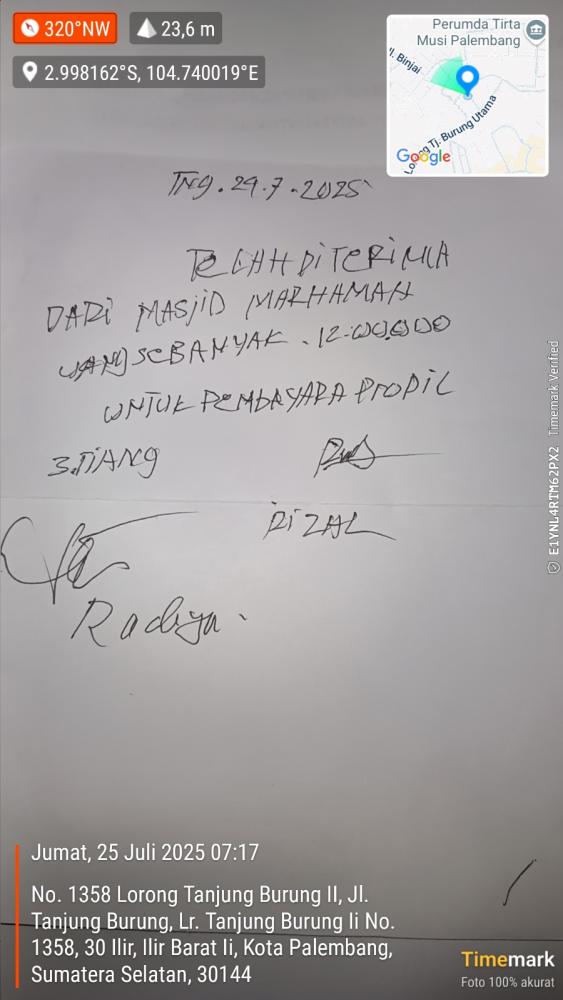 320°NW
23,6 m
2.998162°S, 104.740019°E
Perumda Tirta
Musi Palembang
Jl. Binjai
Lorong Tj. Burung Utama
Google
TNG. 29.7.2025
TELAH DITERIMA
DARI MASJID MARHAMAH
UANG SEBANYAK . 12.000.000
UNTUK PEMBAYARA PROPIL
3.TIANG
RIZAL
Radiya.
E1YNL4RTM62PX2 Timemark Verified
Jumat, 25 Juli 2025 07:17
No. 1358 Lorong Tanjung Burung II, Jl.
Tanjung Burung, Lr. Tanjung Burung Ii No.
1358, 30 Ilir, Ilir Barat Ii, Kota Palembang,
Sumatera Selatan, 30144
Timemark
Foto 100% akurat